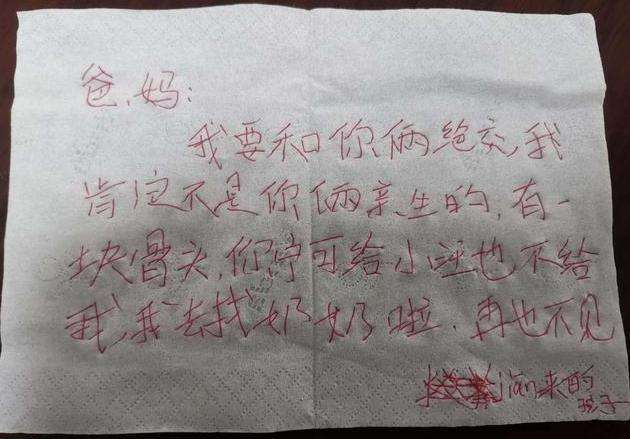 爸、妈:
我要和你俩绝交,我
肯定不是你俩亲生的,有一
块骨头,你宁可给小汪也不给
我,我去找奶奶啦.再也不见
来的
孩子